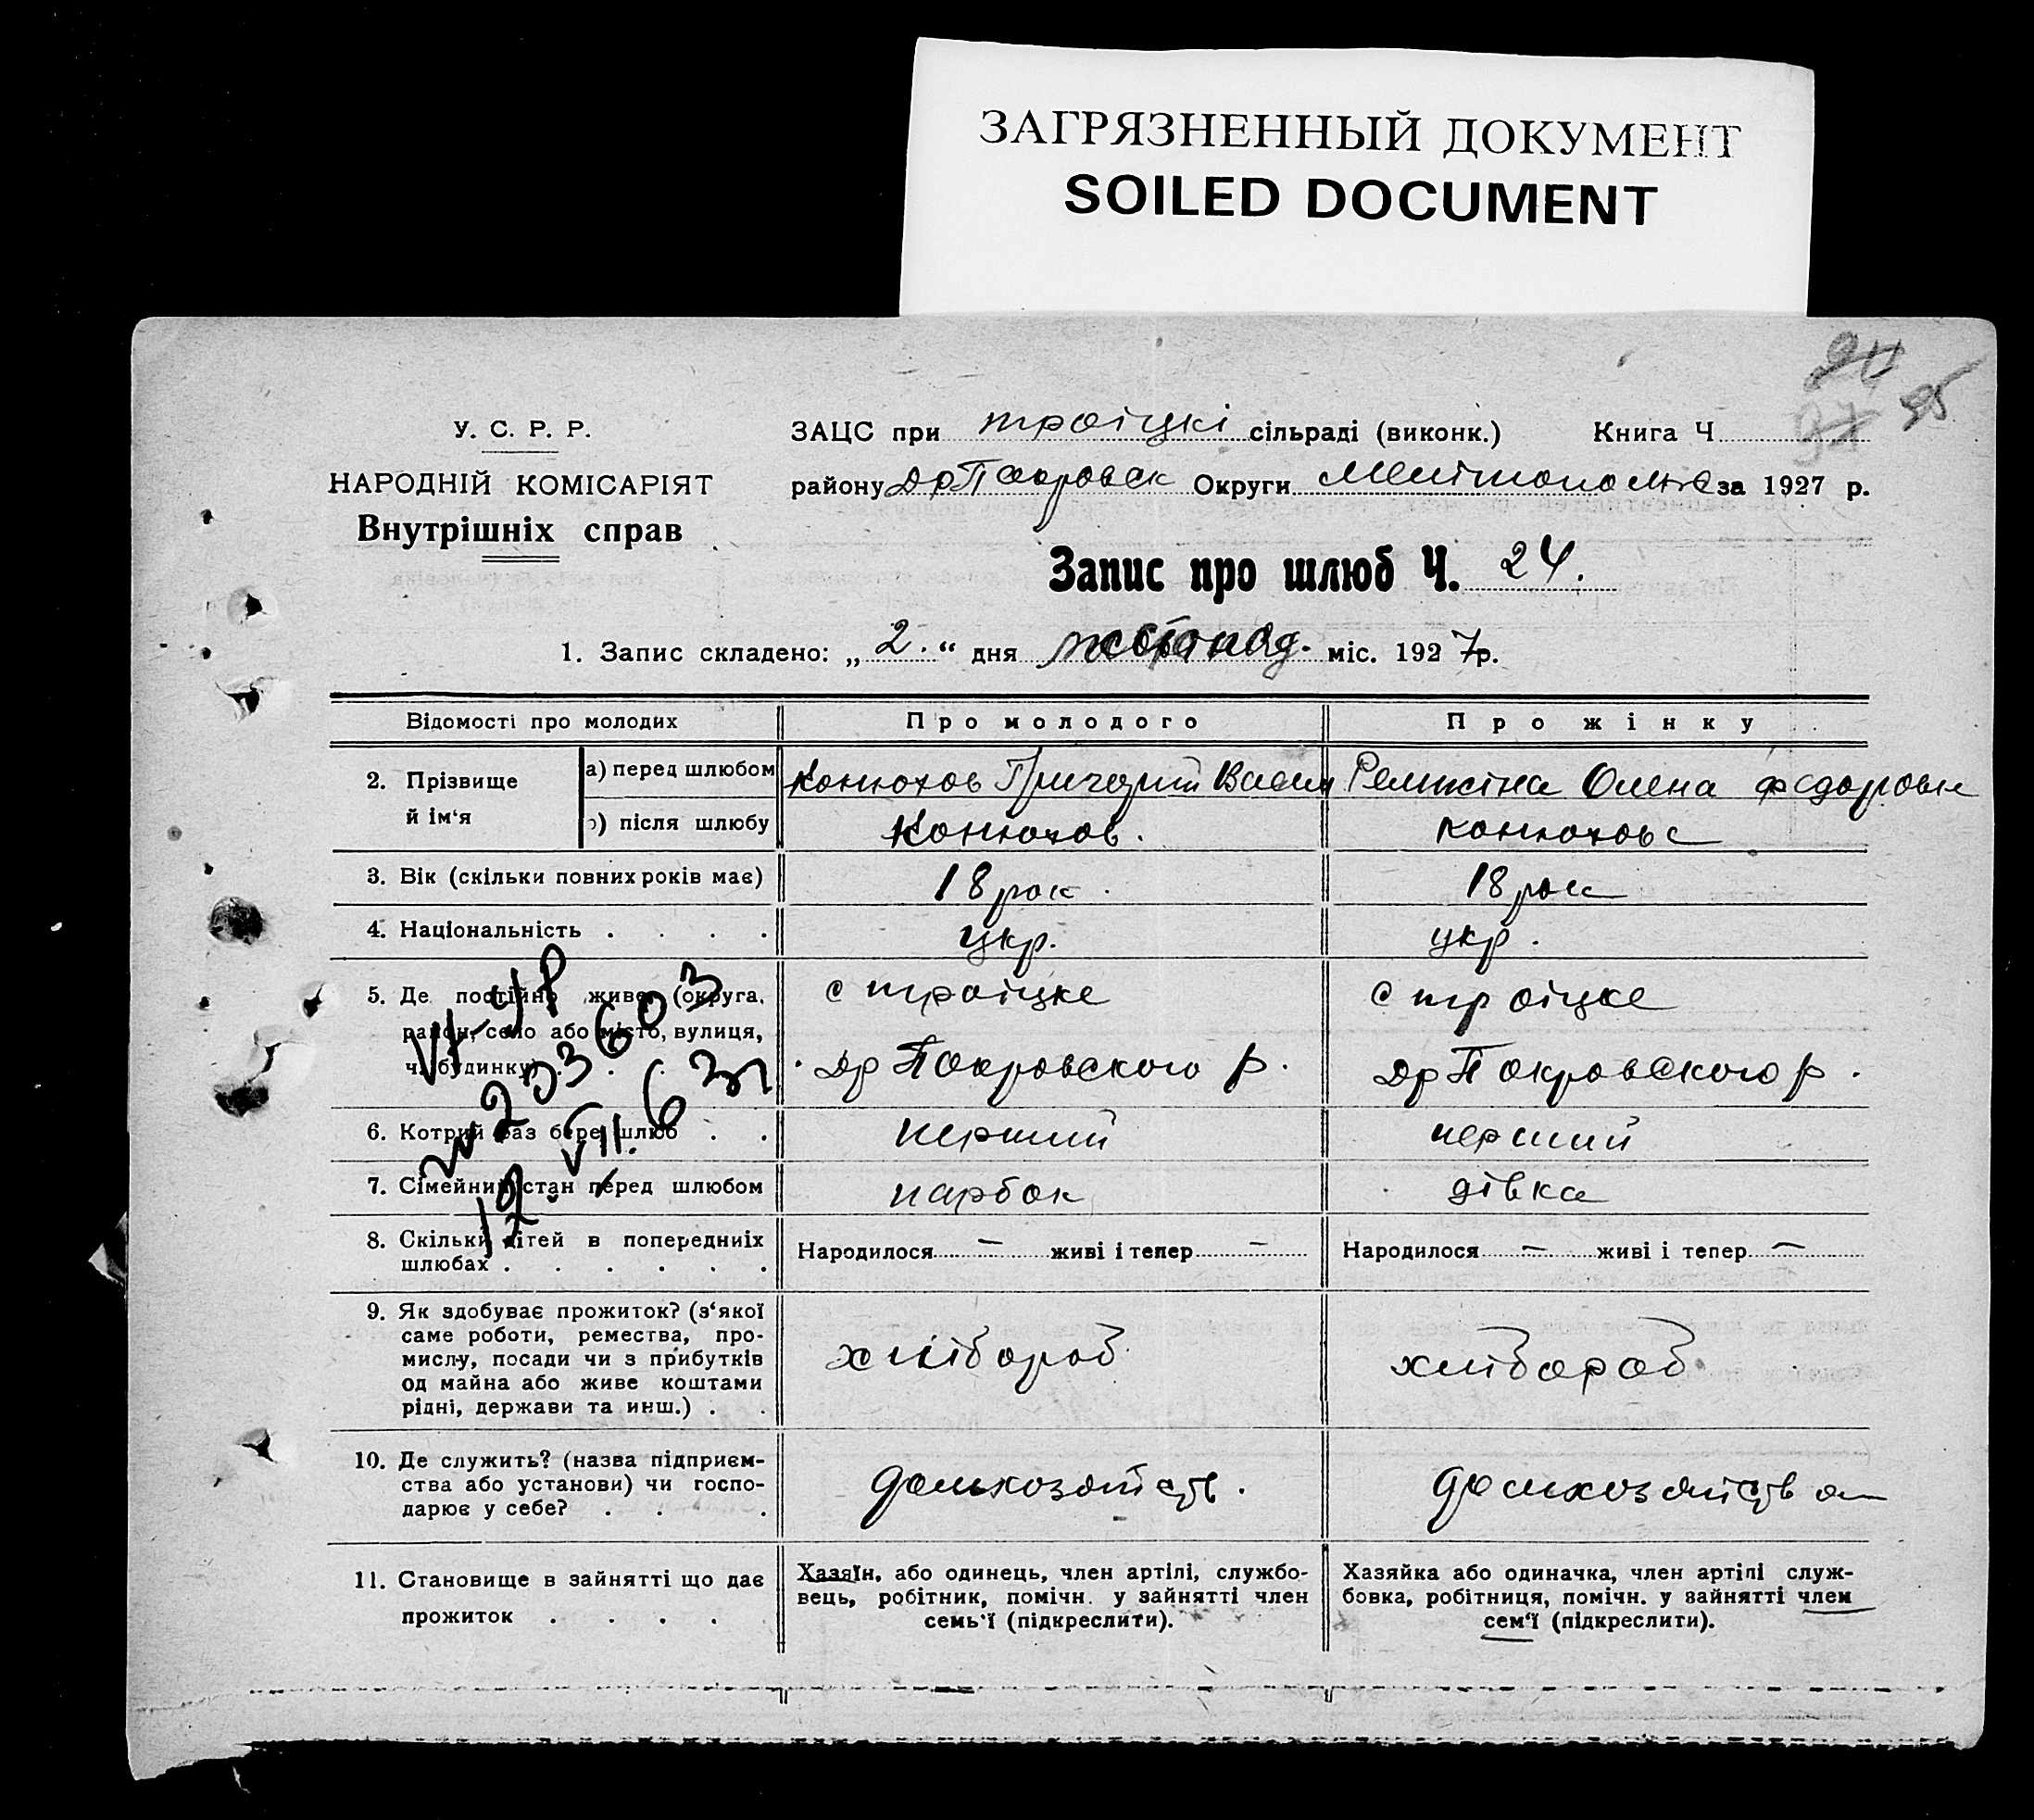 ЗАГРЯЗНЕННЫЙ ДОКУМЕНТ
SOILED DOCUMENT
24
95
У. С. Р. Р.
НАРОДНІЙ КОМІСАРІЯТ
Внутрішніх справ
ЗАЦС при троіцкі сільраді (виконк.) Книга Ч
району Др Покровск Округи за 1927 р.
Запис про шлюб Ч. 24.
1. Запис складено: „2.“ дня міс. 1927р.
Відомості про молодих Про молодого Про жінку
2. Прізвище й ім‘я
а) перед шлюбом Конюхов Григорій Васил Олена Федоровн
б) після шлюбу Конюхов. Конюхова
3. Вік (скільки повних років має) 18 рок. 18 рок
4. Національність . . . . укр. укр.
5. Де постійно живе (округа, с троіцке с троіцке
район, село або місто, вулиця,
ч. будинку) . . Др Покровского р. Др Покровского р.
VI-УР
№ 233603
19. VII. 63г
6. Котрий раз бере шлюб . . перший перший
7. Сімейний стан перед шлюбом парбок дівка
8. Скільки дітей в попередниіх Народилося — живі і тепер — Народилося — живі і тепер —
шлюбах . . . . . .
9. Як здобуває прожиток? (з‘якої
саме роботи, ремества, про-
мислу, посади чи з прибутків хлібороб хлібороб
од майна або живе коштами
рідні, держави та инш.) . .
10. Де служить? (назва підприєм-
ства або установи) чи госпо-
дарює у себе? . . .
11. Становище в зайнятті що дає
прожиток . . . .
Хазяїн, або одинець, член артілі, службо-
вець, робітник, помічн. у зайнятті член
семь‘ї (підкреслити).
Хазяйка або одиначка, член артілі служ-
бовка, робітниця, помічн. у зайнятті член
сем‘ї (підкреслити).